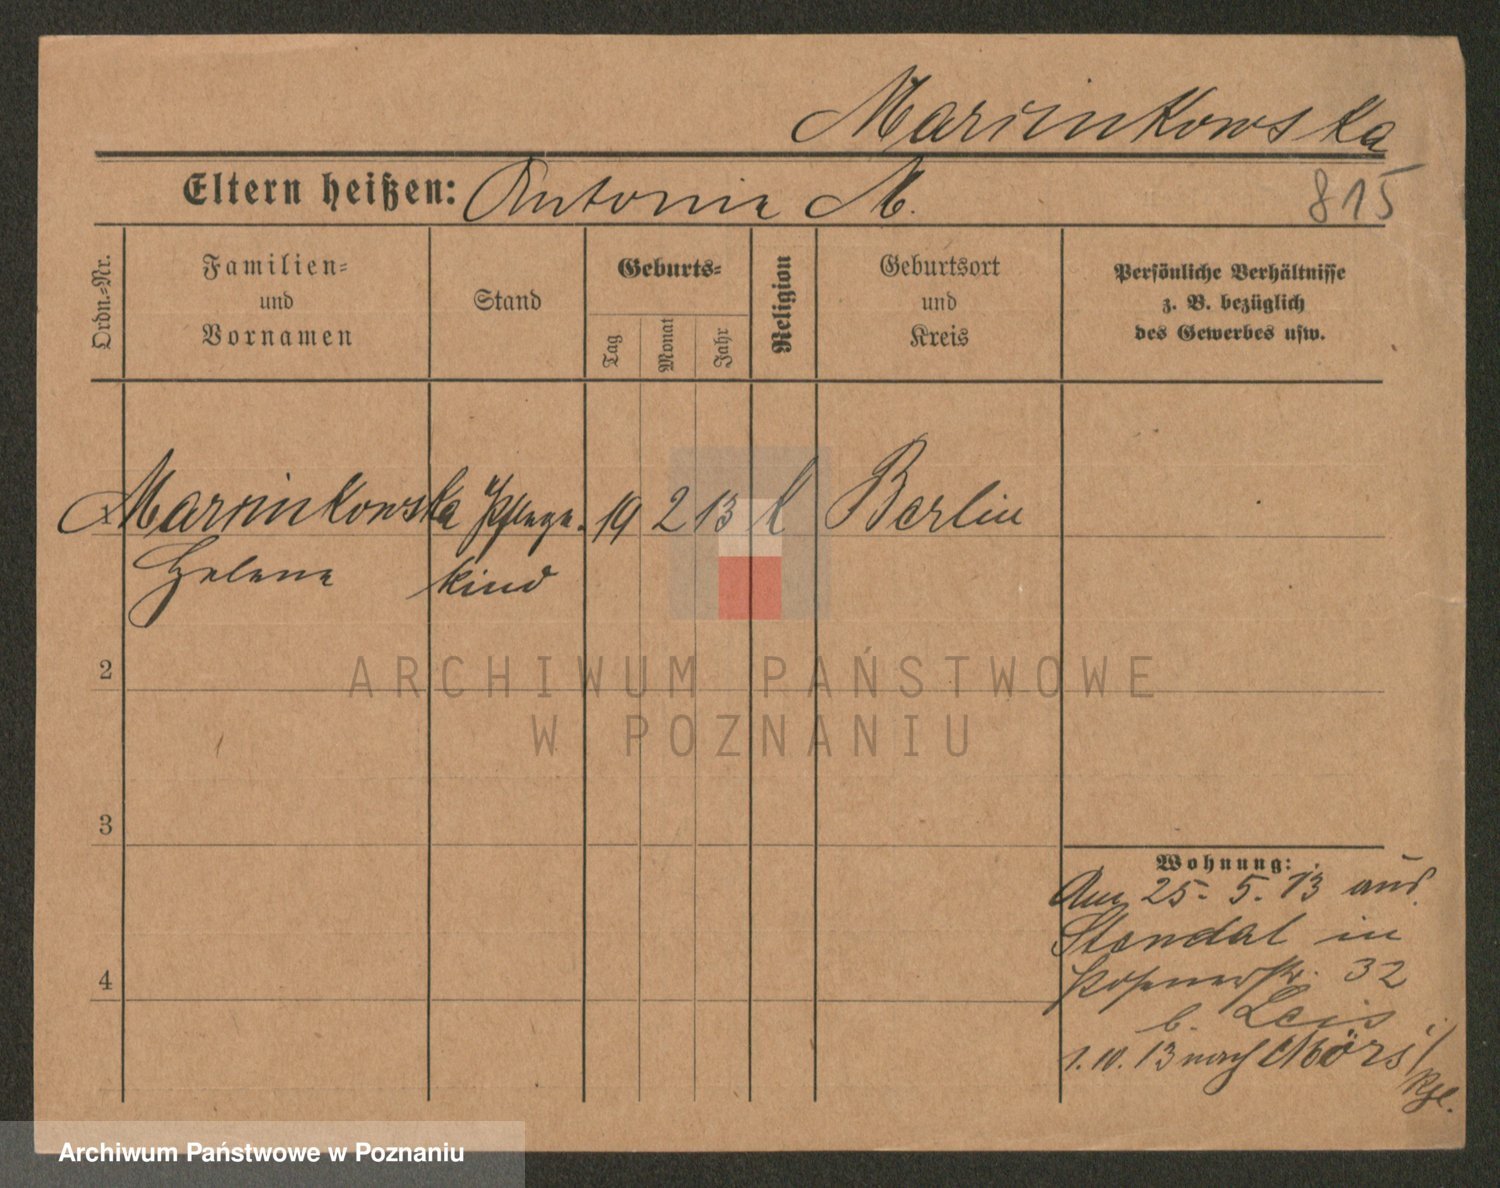 Marcinkowska
Eltern heißen: Antonie M.
815
Ordn.-Nr.
Familien-
und
Vornamen
Stand
Geburts-
Tag
Monat
Jahr
Religion
Geburtsort
und
Kreis
Persönliche Verhältnisse
z. B. bezüglich
des Gewerbes usw.
1 Marcinkowska Pflege- 19 2 13 k Berlin
Helene kind
2
3
4
Wohnung:
Am 25. 5. 13 aus
Stendal in
Posenerstr. 32
b. Leis
1. 10. 13 nach Mörs
ARCHIWUM PAŃSTWOWE
W POZNANIU
Archiwum Państwowe w Poznaniu